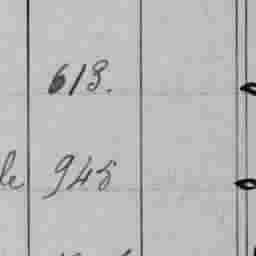 613.
le 945